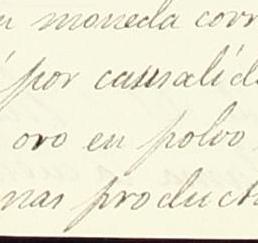 moneda corr
por casualida
oro en polvo
nas product